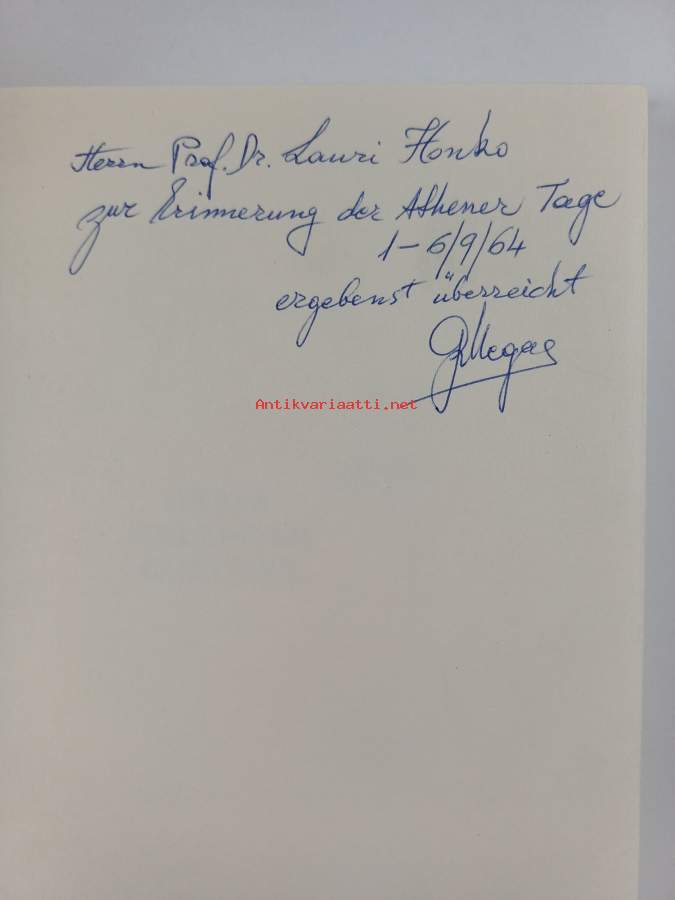 Herrn Prof. Dr. Lauri Honko
zur Erinnerung der Athener Tage
1–6/9/64
ergebenst überreicht
GMegas
Antikvariaatti.net